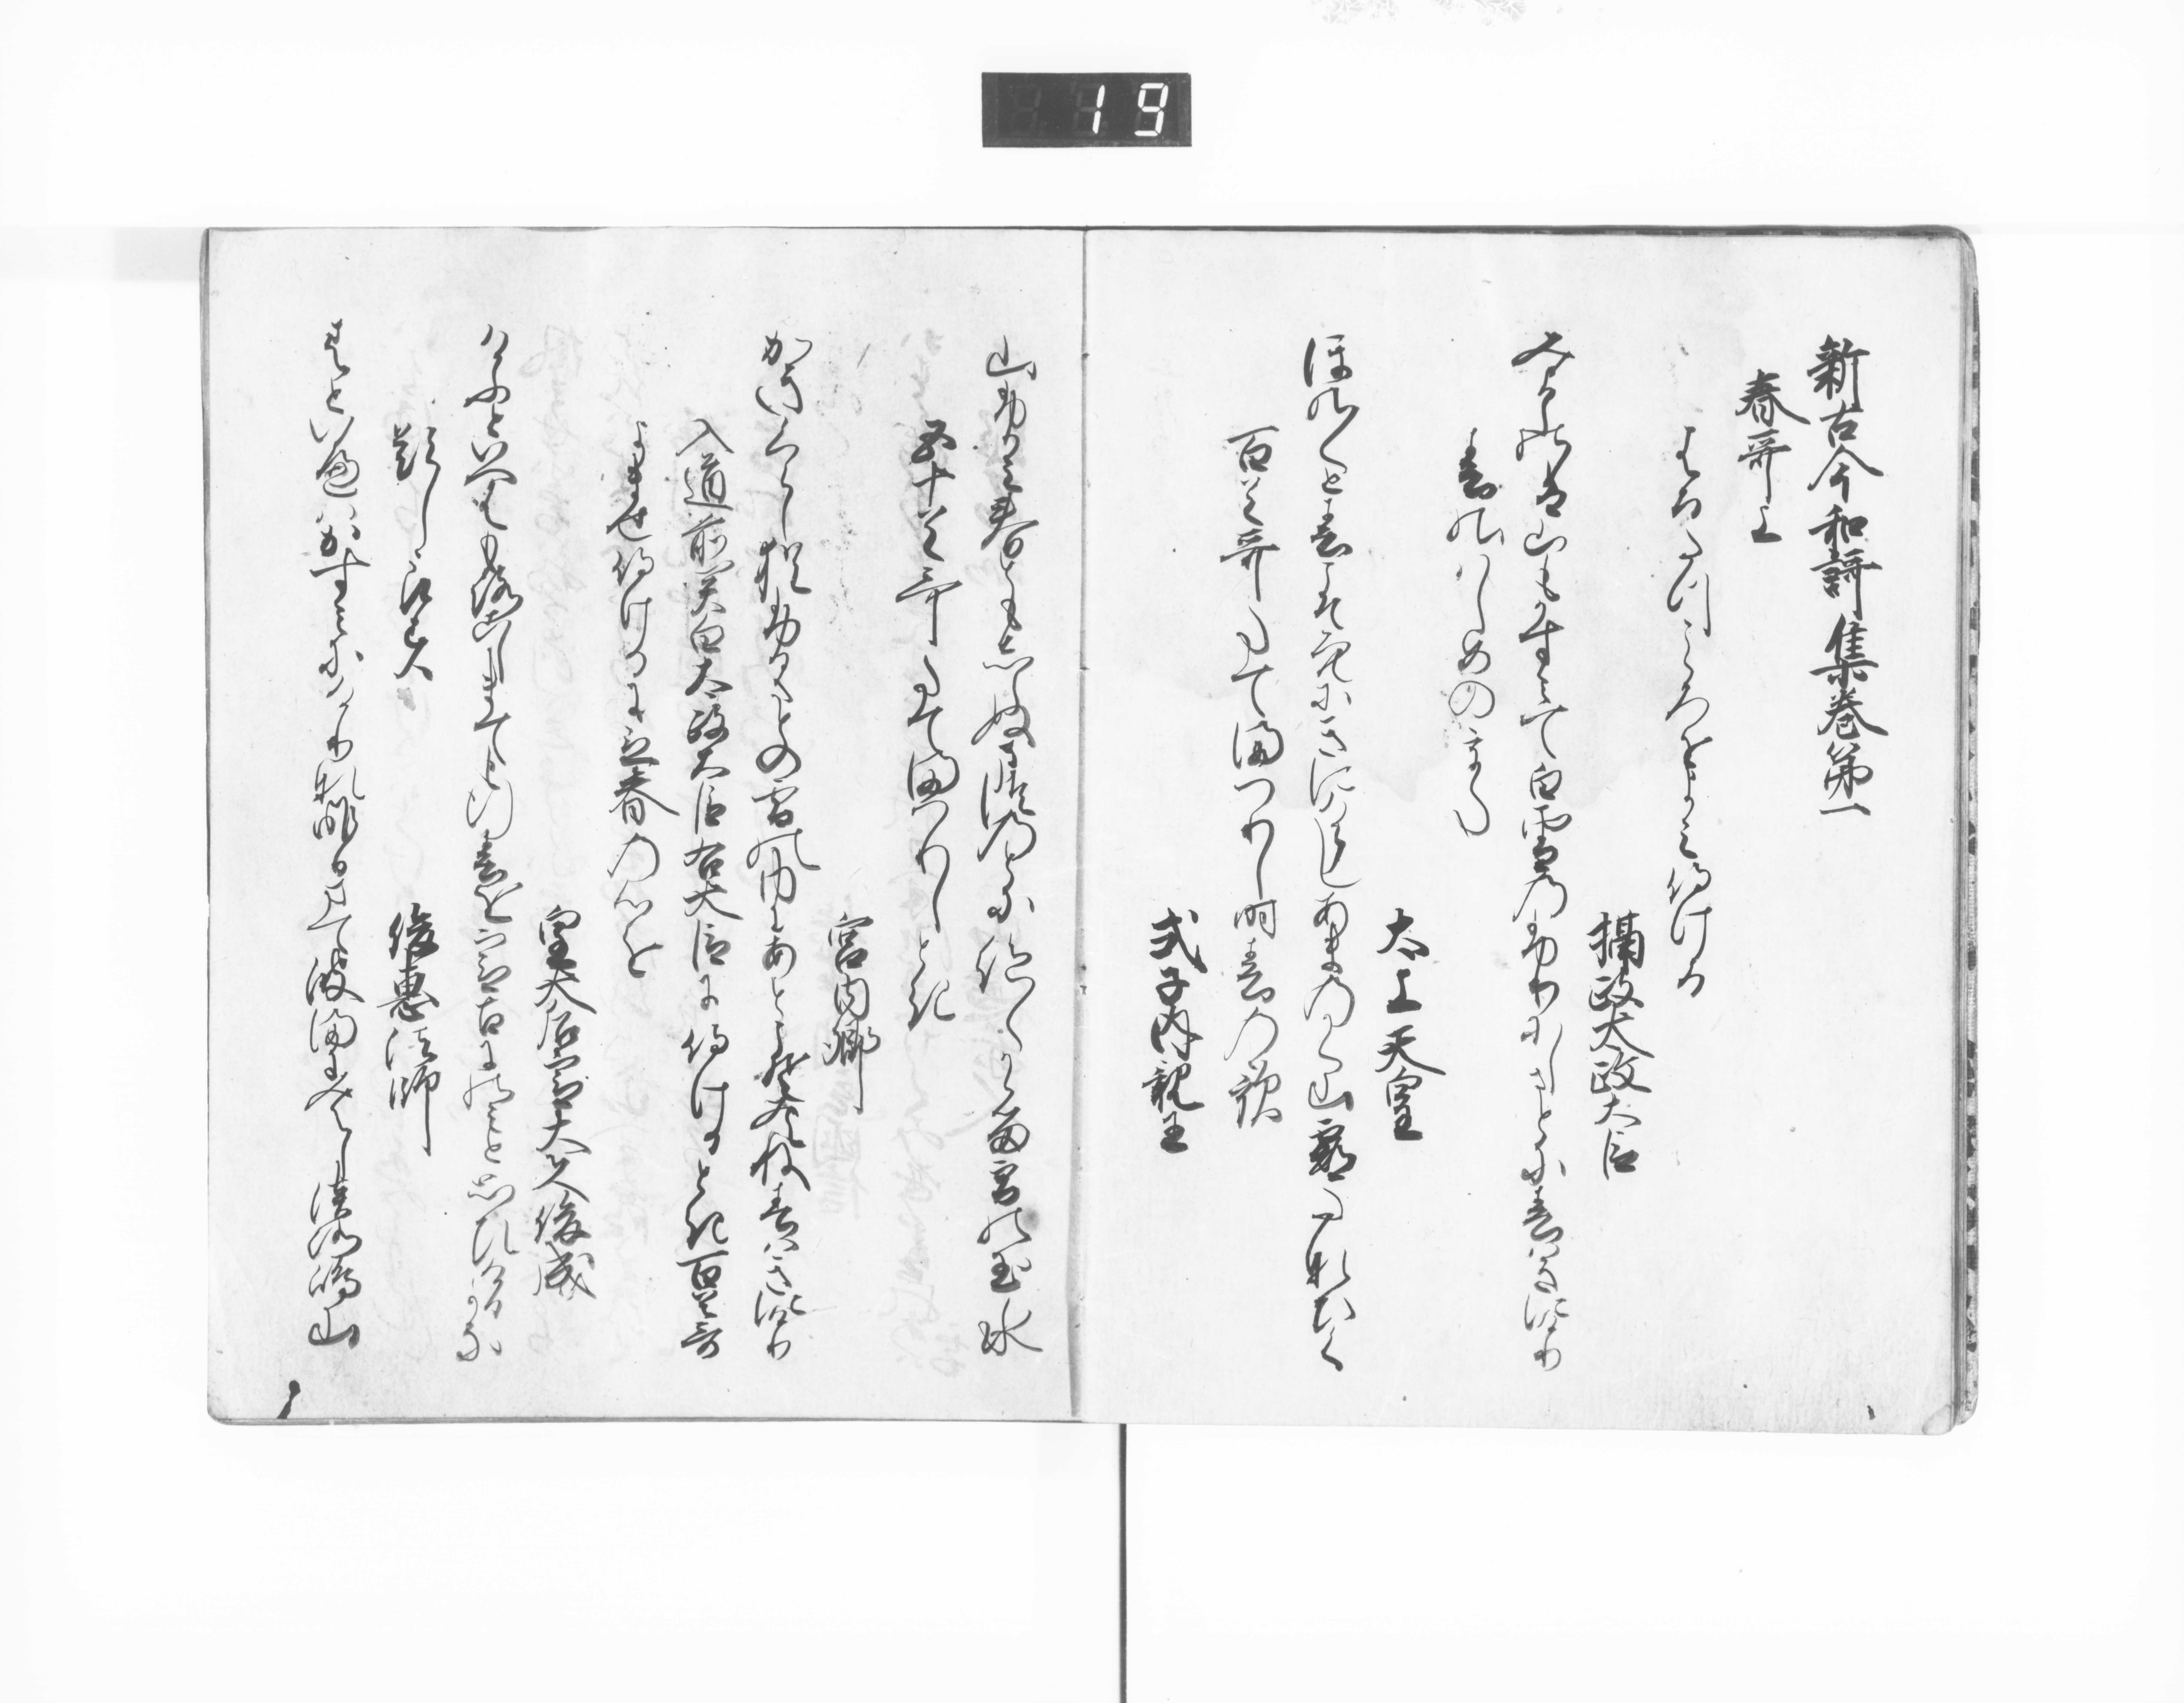 19
新古今和謌集巻第一
春哥上
はるたつこゝろをよみ侍ける
摂政太政大臣
みよし野は山もかすみて白雪のふりにしさとに春はきにけり
春のはしめのうた
太上天皇
ほの〳〵と春こそ空にきにけらしあまのかく山霞たなひく
百首哥たてまつりし時春の歌
式子内親王
山ふかみ春ともしらぬ松の戸にたえ〳〵かゝる雪の玉水
五十首哥たてまつりしとき
宮内卿
かきくらし猶ふるさとの雪の内にあとこそ見えね春はきにけり
入道前関白太政大臣右大臣に侍けるとき百首哥
よませ侍けるに立春の心を
皇太后宮大夫俊成
けふといへはもろこしまても行春を宮古にのみと思ひける哉
題しらす
俊恵法師
春といへはかすみにけりな昨日まて波まにみえし淡路嶋山